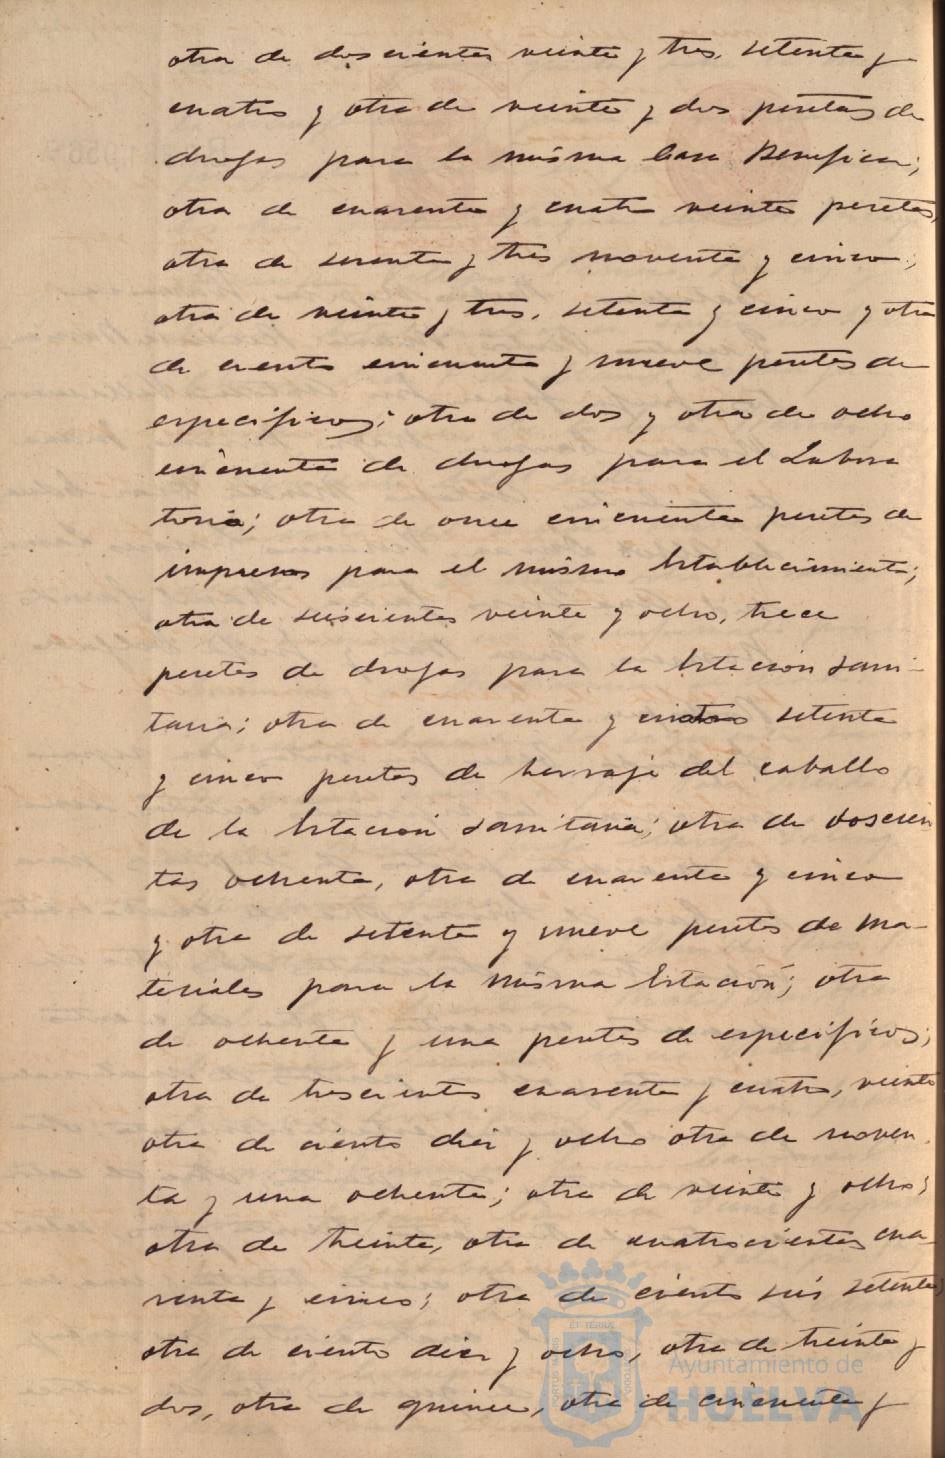 otra de doscientas veinte y tres, setenta y
cuatro y otra de veinte y dos pesetas de
drogas para la misma Casa Benefica;
otra de cuarenta y cuatro veinte pesetas,
otra de sesenta y tres noventa y cinco;
otra de veinte y tres, setenta y cinco y otra
de ciento cincuenta y nueve pesetas de
especificos; otra de dos y otra de ocho
cincuenta de drogas para el Labora
torio; otra de once cincuenta pesetas de
impresos para el mismo Establecimiento;
otra de seiscientas veinte y ocho, trece
pesetas de drogas para la Estacion Sani-
taria; otra de cuarenta y cuatro setenta
y cinco pesetas de herraje del caballo
de la Estacion Sanitaria; otra de doscien
tas ochenta, otra de cuarenta y cinco
y otra de setenta y nueve pesetas de ma-
teriales para la misma Estación; otra
de ochenta y una pesetas de especificos;
otra de trescientas cuarenta y cuatro, veinte
otra de ciento diez y ocho otra de noven-
ta y una ochenta; otra de veinte y ocho;
otra de treinta, otra de cuatrocientas cua-
renta y cinco; otra de ciento seis setenta,
otra de ciento diez y ocho, otra de treinta y
dos, otra de quince, otra de cincuenta y
Ayuntamiento de
HUELVA